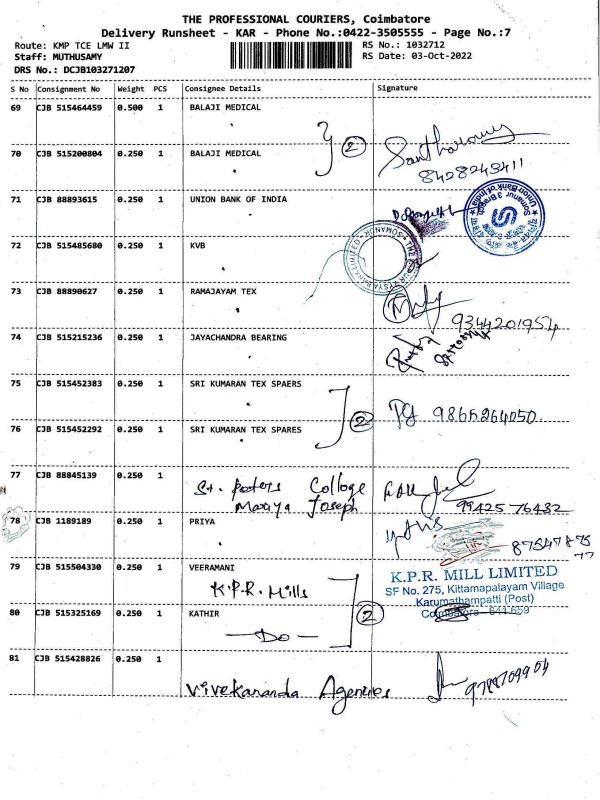 THE PROFESSIONAL COURIERS, Coimbatore
Delivery Runsheet - KAR - Phone No.:0422-3505555 - Page No.:7
Route: KMP TCE LMW II
RS No.: 1032712
Staff: MUTHUSAMY
RS Date: 03-Oct-2022
DRS No.: DCJB103271207
S No Consignment No Weight PCS Consignee Details Signature
69 CJB 515464459 0.500 1 BALAJI MEDICAL
2
70 CJB 515200804 0.250 1 BALAJI MEDICAL
8428243411
71 CJB 88893615 0.250 1 UNION BANK OF INDIA
Somanur 3 Branch
Union Bank of India
72 CJB 515485680 0.250 1 KVB
SOMANUR
73 CJB 88890627 0.250 1 RAMAJAYAM TEX
9344201954
74 CJB 515215236 0.250 1 JAYACHANDRA BEARING
75 CJB 515452383 0.250 1 SRI KUMARAN TEX SPAERS
2 9866264050.
76 CJB 515452292 0.250 1 SRI KUMARAN TEX SPARES
77 CJB 88845139 0.250 1 St. Peeters College
Mariya Joseph
99425 76432
78 CJB 1189189 0.250 1 PRIYA
87547875
77
79 CJB 515504330 0.250 1 VEERAMANI
K.P.R. Mills
K.P.R. MILL LIMITED
SF No. 275, Kittamapalayam Village
Karumathampatti (Post)
Coimbatore - 641 659
80 CJB 515325169 0.250 1 KATHIR
2
- Do -
81 CJB 515428826 0.250 1
Vivekananda Agencies
9788709904